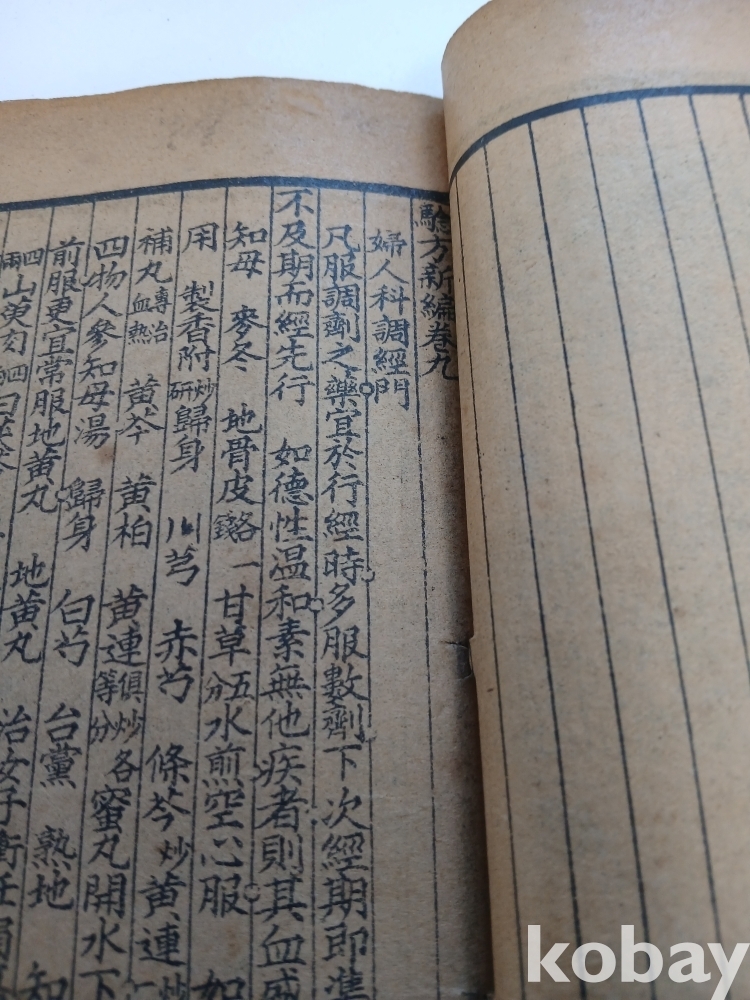 驗方新編卷九
婦人科調經門
凡服調劑之藥宜於行經時多服數劑下次經期即準
不及期而經先行 如德性温和素無他疾者則其血盛
知母 麥冬 地骨皮各一錢 甘草五分水煎空心服 如
用 製香附炒研歸身 川芎 赤芍 條芩炒黄連炒
補丸專治血熱 黄芩 黄柏 黄連俱炒各等分蜜丸開水下
四物人參知母湯 歸身 白芍 台黨 熟地 知
前服更宜常服地黄丸 地黄丸 治女子衝任
四兩山萸肉四
kobay